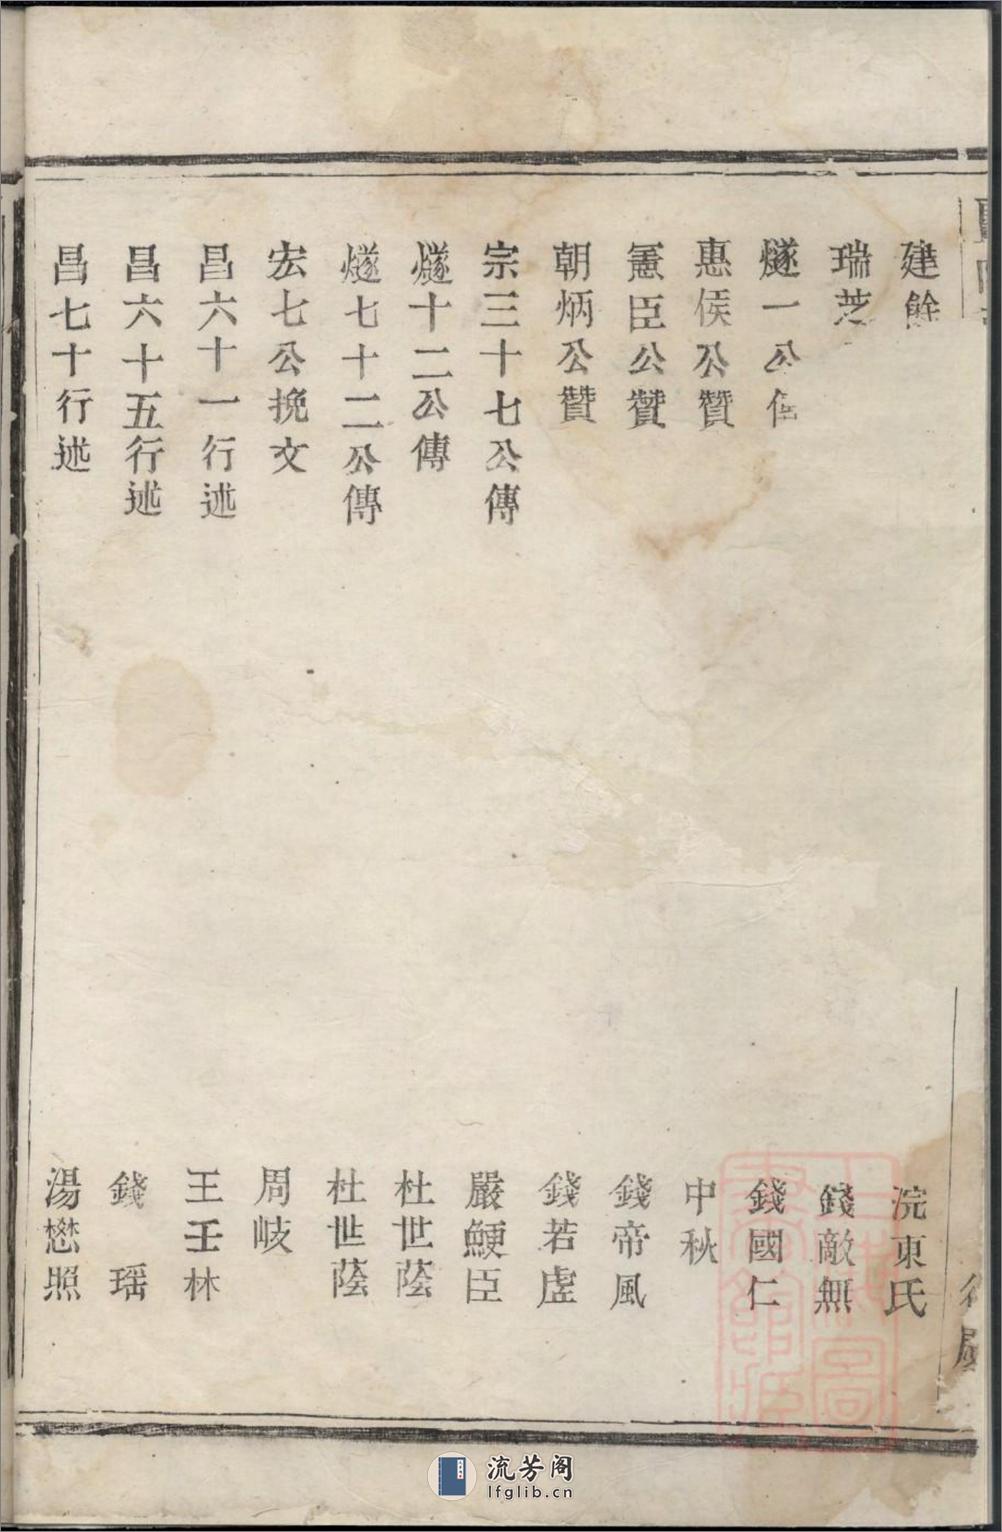 建餘 浣東氏
瑞芝 錢敵無
燧一公 錢國仁
惠侯公贊 中秋
憲臣公贊 錢帝風
朝炳公贊 錢若虛
宗三十七公傳 嚴鯁臣
燧十二公傳 杜世蔭
燧七十二公傳 杜世蔭
宏七公挽文 周岐
昌六十一行述 王壬林
昌六十五行述 錢瑶
昌七十行述 湯懋照
流芳阁
lfglib.cn